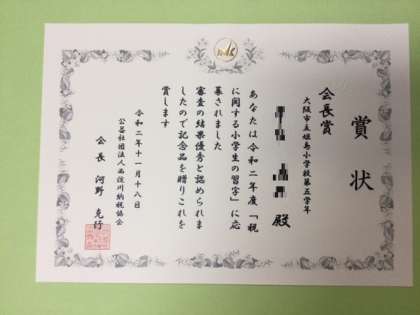 賞状
会長賞
大阪市立姫島小学校第五学年
殿
あなたは令和二年度「税
に関する小学生の習字」に応
募されました
審査の結果優秀と認められま
したので記念品を贈りこれを
賞します
令和二年十一月十八日
公益社団法人西淀川納税協会
会長 河野 克行